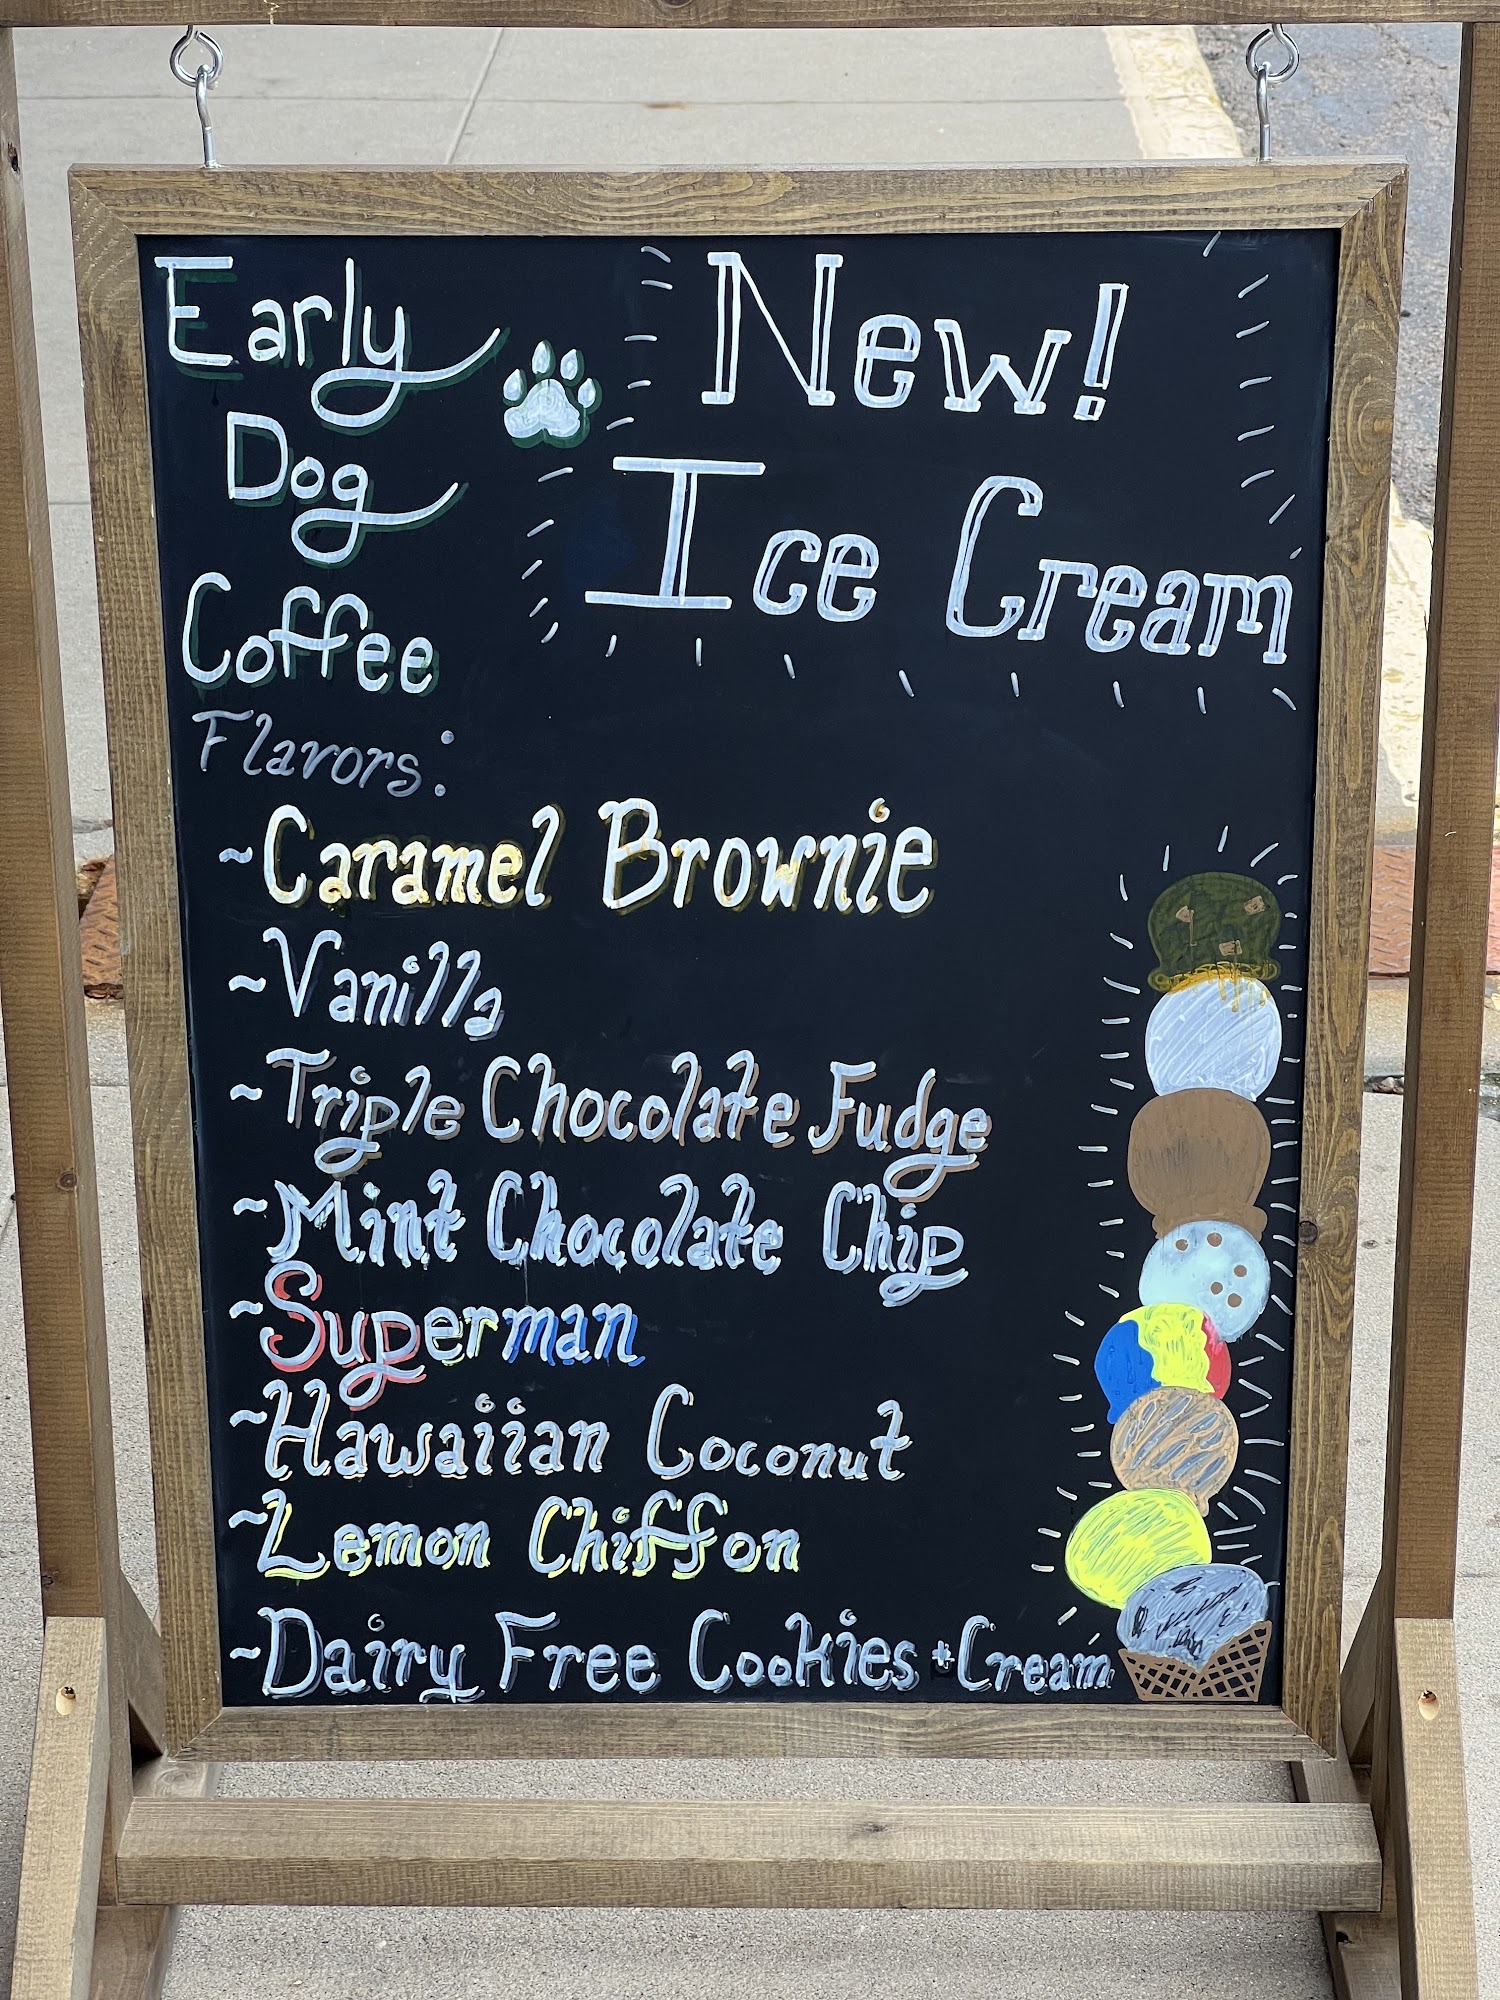 Early
Dog
Coffee
New!
Ice Cream
Flavors:
~Caramel Brownie
~Vanilla
~Triple Chocolate Fudge
~Mint Chocolate Chip
~Superman
~Hawaiian Coconut
~Lemon Chiffon
~Dairy Free Cookies + Cream